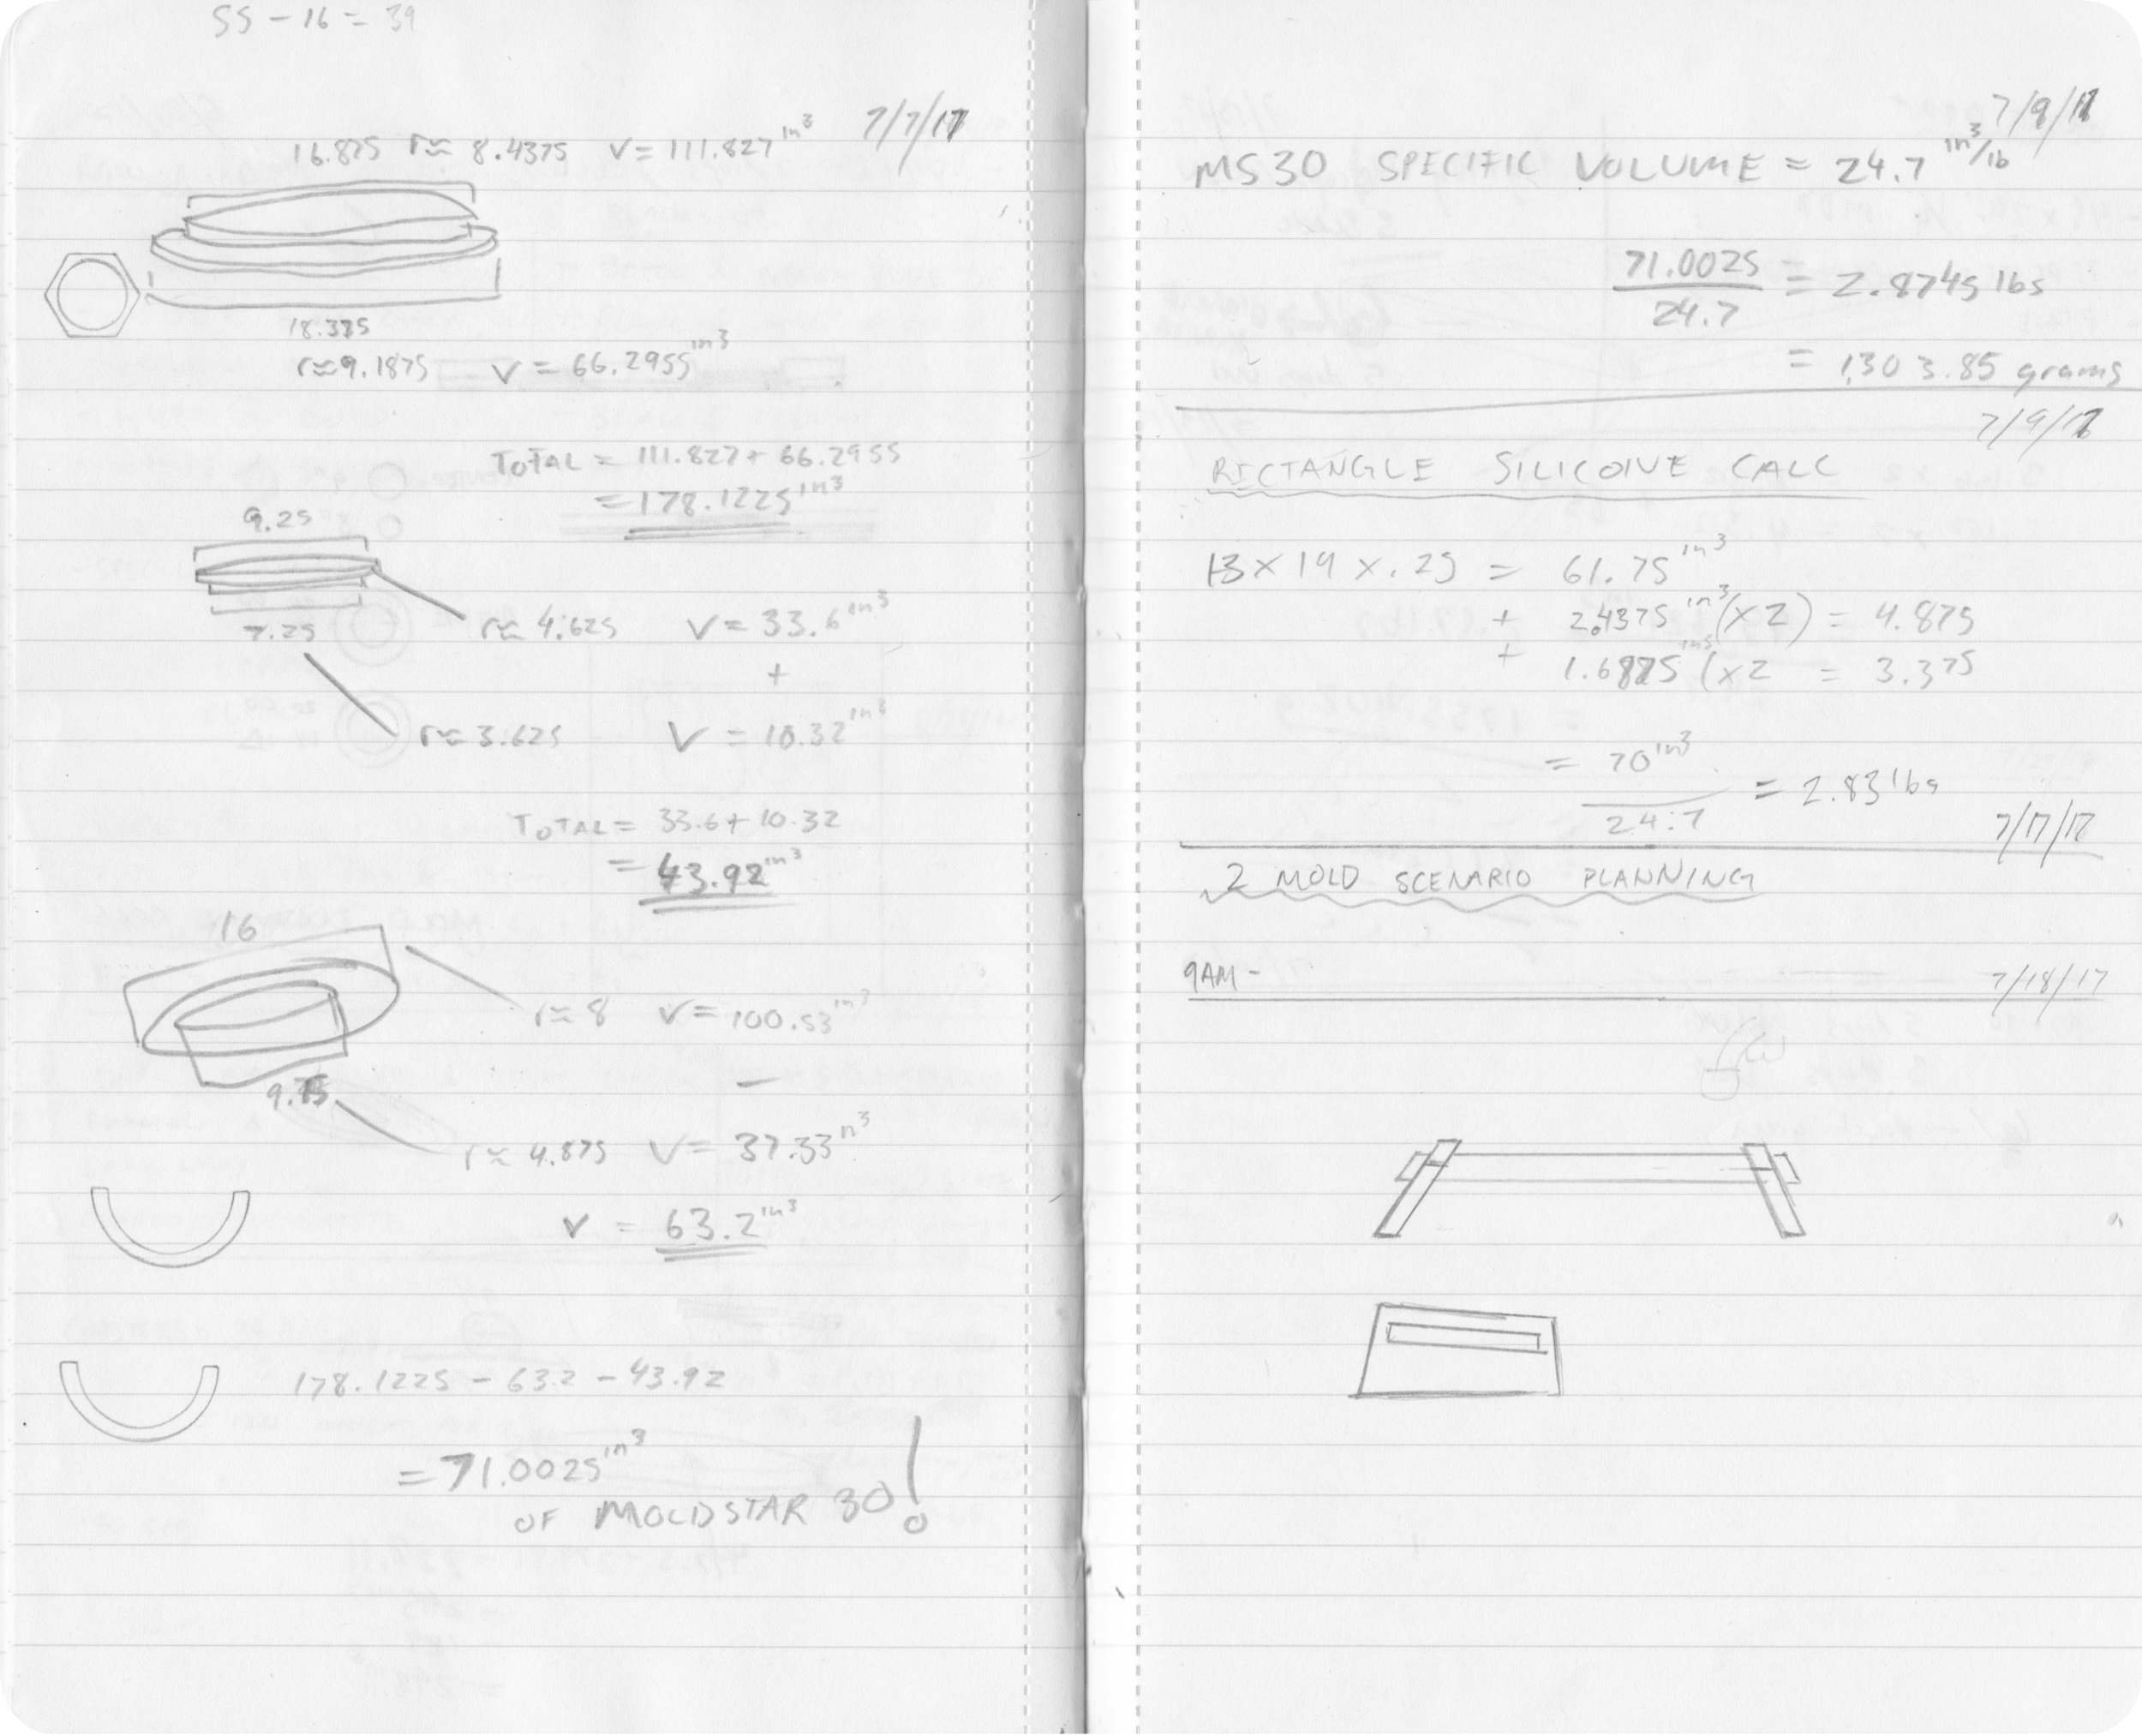 55 - 16 = 39
7/7/17
16.875 r≈ 8.4375 V= 111.827 in³
18.375
r≈9.1875 V = 66.2955 in³
TOTAL = 111.827+ 66.2955
= 178.1225 in³
9.25
7.25
r≈ 4.625 V= 33.6 in³
+
r≈ 3.625 V = 10.32 in³
TOTAL = 33.6+ 10.32
= 43.92 in³
16
r≈ 8 V= 100.53 in³
−
9.75
r≈ 4.875 V= 37.33 in³
V = 63.2 in³
178.1225 - 63.2 - 43.92
= 71.0025 in³
OF MOLDSTAR 30!
MS30 SPECIFIC VOLUME = 24.7 in³/lb
71.0025
24.7
= 2.8745 lbs
= 1,303.85 grams
RECTANGLE SILICONE CALC
13 x 19 x .25 = 61.75 in³
+ 2.4375 in³ (x2) = 4.875
+ 1.6875 in³ (x2 = 3.375
= 70 in³
24.7
= 2.83 lbs
7/17/17
2 MOLD SCENARIO PLANNING
9AM -
7/18/17